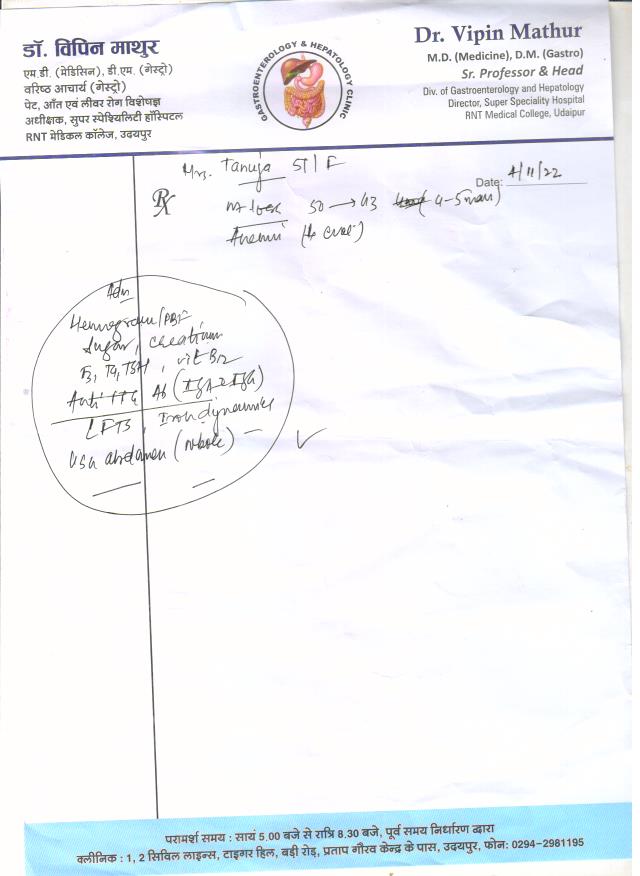 डॉ. विपिन माथुर
एम.डी. (मेडिसिन), डी.एम. (गेस्ट्रो)
वरिष्ठ आचार्य (गेस्ट्रो)
पेट, आँत एवं लीवर रोग विशेषज्ञ
अधीक्षक, सुपर स्पेशियलिटी हॉस्पिटल
RNT मेडिकल कॉलेज, उदयपुर
GASTROENTEROLOGY & HEPATOLOGY CLINIC
Dr. Vipin Mathur
M.D. (Medicine), D.M. (Gastro)
Sr. Professor & Head
Div. of Gastroenterology and Hepatology
Director, Super Speciality Hospital
RNT Medical College, Udaipur
Mrs. Tanuja 57/F
Date: 4/11/22
Rx
wt loss 50 → 43 (4-5
Adv
Hemogram/PBF
Sugar, Creatinine
T3, T4, TSH, vit B12
Anti tTG Ab (IgA & IgG)
LFTs, Iron dynamics
USG abdomen (whole)
परामर्श समय : सायं 5.00 बजे से रात्रि 8.30 बजे, पूर्व समय निर्धारण द्वारा
क्लीनिक : 1, 2 सिविल लाइन्स, टाइगर हिल, बड़ी रोड़, प्रताप गौरव केन्द्र के पास, उदयपुर, फोन: 0294-2981195